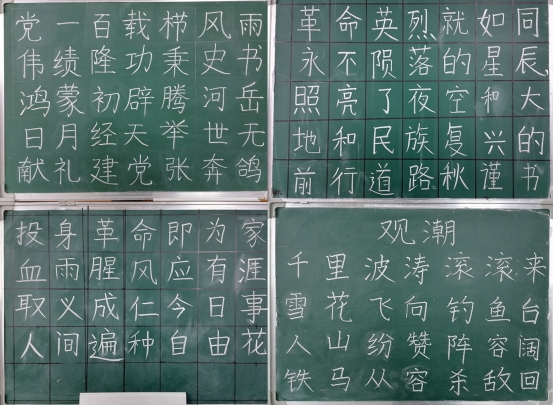 党一百载栉风雨
伟绩隆功秉史书
鸿蒙初辟腾河岳
日月经天举世无
献礼建党张奔鸽
革命英烈就如同
永不陨落的星辰
照亮了夜空和大
地和民族复兴的
前行道路秋谨书
投身革命即为家
血雨腥风应有涯
取义成仁今日事
人间遍种自由花
观潮
千里波涛滚滚来
雪花飞向钓鱼台
人山纷赞阵容阔
铁马从容杀敌回